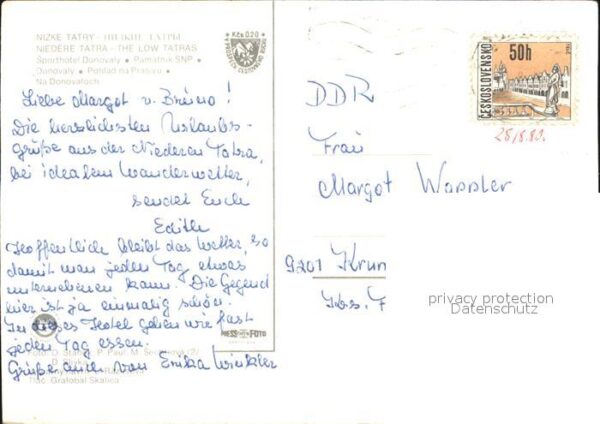 NIZKE TATRY - НИЗКИЕ ТАТРЫ
NIEDERE TATRA - THE LOW TATRAS
Športhotel Donovaly • Pamätník SNP •
Donovaly • Pohľad na Prašivú •
Na Donovaloch
Kčs 0,20
Liebe Margot u. Bruno!
Die herzlichsten Urlaubs-
grüße aus der Niederen Tatra,
bei idealem Wanderwetter,
sendet Euch
Edith
Hoffentlich bleibt das Wetter, so
damit man jeden Tag etwas
unternehmen kann. Die Gegend
hier ist ja einmalig schön.
In dieses Hotel gehen wir fast
jeden Tag essen.
Grüße auch von Erika Winkler
Foto: P. Paul, M.
Tlač: Grafobal Skalica
FOTO
ČESKOSLOVENSKO
50h
28/8.80.
DDR
Frau
Margot Wappler
9201 Krum
Kbs. F
privacy protection
Datenschutz